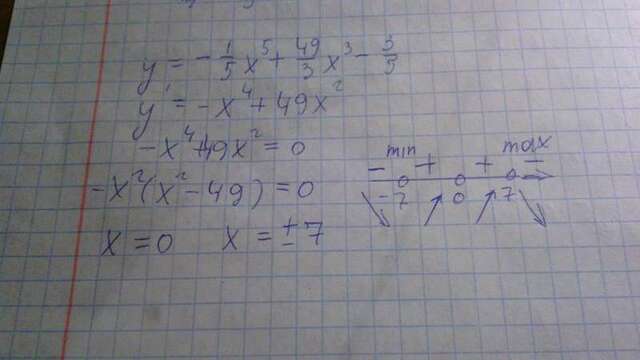 y = -1/5 x⁵ + 49/3 x³ - 3/5
y' = -x⁴ + 49x²
-x⁴ + 49x² = 0
-x²(x² - 49) = 0
x = 0 x = ±7
min max
- + + -
-7 0 7
↘ ↗ ↗ ↘